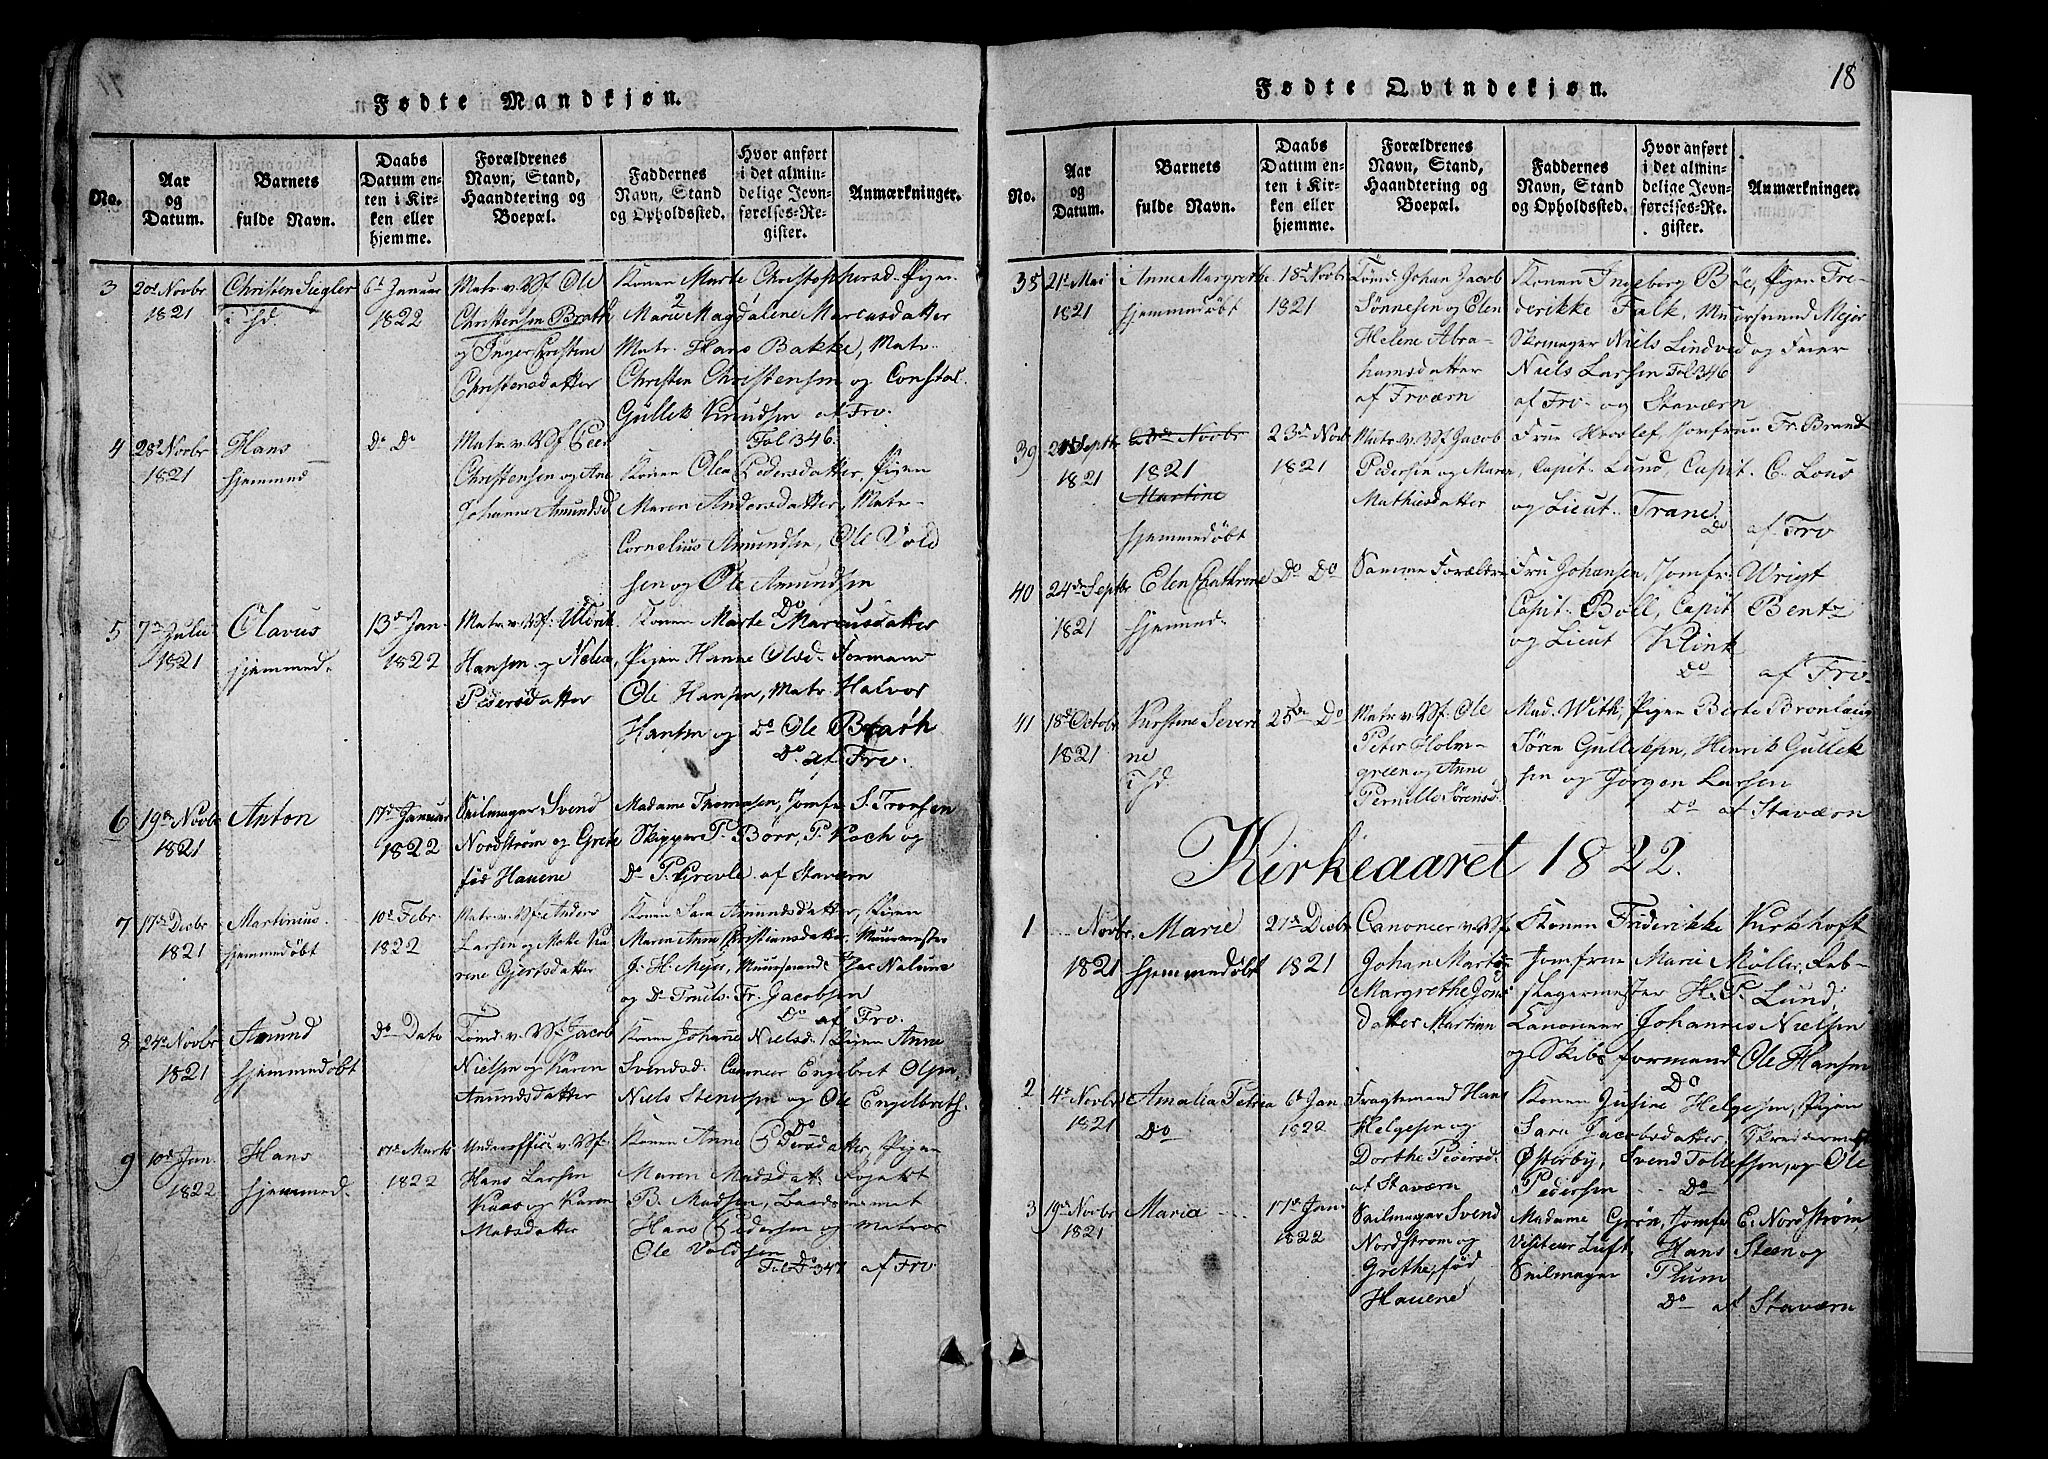 Fødte Mandkjøn.
No.
Aar
og
Datum.
Barnets
fulde Navn.
Daabs
Datum en-
ten i Kir-
ken eller
hjemme.
Forældrenes
Navn, Stand,
Haandtering og
Boepæl.
Faddernes
Navn, Stand
og Opholdssted.
Hvor anført
i det almin-
delige Jevn-
førelses-Re-
gister.
Anmærkninger.
3
20d Novbr
1821
Christen Siegler
6t Januar
1822
Matr. v. Vf. Ole
Christensen Brath
og Inger Christine
Christensdatter
Konen Marte Christophersd. Pigen
Marie Magdalene Marcusdatter
Matr. Hans Bakke, Matr.
Christen Christensen og Constal.
Gullek Knudsen af Frv.
Fol 346.
4
28d Novbr
1821
Hans
hjemmed
Do Do
Matr. v. Vf. Peer
Christensen og Ane
Johanne Amundsd
Konen Olea Pedersdatter, Pigen
Maren Andersdatter, Matr.
Cornelius Amundsen, Ole Vold
sen og Ole Amundsen
Do
5
7de Julii
1821
Olavus
hjemmed.
13d Jan.
1822
Matr. v. Vf. Uldrik
Hansen og Nelia
Pedersdatter
Konen Marte Marcusdatter
Pigen Hanne Olsd. Formand
Ole Hansen, Matr. Halvor
Hansen og Do Ole Brath
Do. af Frv.
6
19de Novbr
1821
Anton
17d Januar
1822
Seilmager Svend
Nordstrøm og Grete
fød Hauene
Madame Thomasen, Jomfr. S. Tronsen
Skipper T. Borr, P. Koch og
Do P. Grevle af Staværn
7
17de Decbr
1821
Martinius
hjemmedøbt
10d Febr
1822
Matr. v. Vf. Anders
Larsen og Mette Ka
rene Gjertsdatter
Konen Sara Amundsdatter, Pigen
Maren Anne Christiansdatter, Muurmester
J. H. Mejer, Muursvend Isac Nalum
og Do Truls Fr. Jacobsen
Do af Frv.
8
24de Novbr
1821
Amund
hjemmedøbt
Do Dato
Tømd. v. Vf. Jacob
Nielsen og Karen
Amundsdatter
Konen Johanne Nielsd. Pigen Anne
Svendsd. Canoneer Engebret Olsen
Niels Stensen og Ole Engelbreths.
Do
9
10d Jan.
1822
Hans
hjemmed.
17de Marts
1822
Underofficer v. Vf.
Hans Larsen
Kaas og Karen
Matsdatter
Konen Anne Pedersdatter, Pigen
Maren Madsdatt.
B. Madsen, Baadsmand
Hans Pedersen og Matros
Ole Voldsen
Fol Do 347 af Frv
18
Fødte Qvindekjøn.
No.
Aar
og
Datum.
Barnets
fulde Navn.
Daabs
Datum en-
ten i Kir-
ken eller
hjemme.
Forældrenes
Navn, Stand,
Haandtering og
Boepæl.
Faddernes
Navn, Stand
og Opholdssted.
Hvor anført
i det almin-
delige Jevn-
førelses-Re-
gister.
Anmærkninger.
38
21de Mai
1821
Anne Margrethe
hjemmedøbt
18de Novbr
1821
Tømd. Johan Jacob
Sønnesen og Elen
Helene Abra-
hamsdatter
af Frværn
Konen Ingeborg Bøe, Pigen Fre-
derikke Falk, Muursvend Mejer
Skomager Niels Lindved og Feier
Niels Larsen Fol 346
af Frv. og Staværn
39
Septbr
1821
23de Novbr
1821
Martine
hjemmedøbt
23de Nov.
1821
Matr. v. Vf. Jacob
Pedersen og Maren
Mathiesdatter
Frue Hvoslef, Jomfrue Fr. Brandt
Capit. Lund, Capit. C. Lous
og Lieut. Trane.
Do af Frv
40
24de Septbr
1821
Elen Chathrine
hjemmed.
Do Do
Samme Forældre
Fru Johansen, Jomfr. Wrigt
Capit. Boll, Capit Bentz
og Lieut Klink
Do af Frv.
41
18d Octobr
1821
Kirstine Severi
ne
25de Do
Matr. v. Vf. Ole
Peter Holm-
green og Anne
Pernille Sørensd.
Mad. With, Pigen Berte Bronlaug
Søren Gullesen, Henrik Gullek
sen og Jørgen Larsen
Do af Staværn
Kirkeaaret 1822.
1
Novbr.
1821
Marie
hjemmedøbt
21de Decbr
1821
Canoneer v. Vf.
Johan Martin
Margrethe Jons
datter Martinn
Konen Friderikke Kirkhoft
Jomfrue Marie Møller, Reb-
slagermester H. P. Lund,
Canoneer Johannes Nielsen
og Skibsformand Ole Hansen
Do
2
4de Novbr
1821
Amalia Petrea
Do
6te Jan
1822
Fragtemand Hans
Helgesen og
Dorthe Pedersd.
af Staværn
Konen Jusine Helgesen, Pigen
Sara Jacobsdatter, Skredderm.
Østerby, Svend Tollefsen, og Ole
Pedersen Do
3
19de Novbr
1821
Maria
17de Jan
1822
Seilmager Svend
Nordstrøm og
Grethe, fød
Hauene
Madame Grøn, Jomfr E. Nordstrøm
Visiteur Luft, Hans Steen og
Seilmager Plum
Do af Staværn